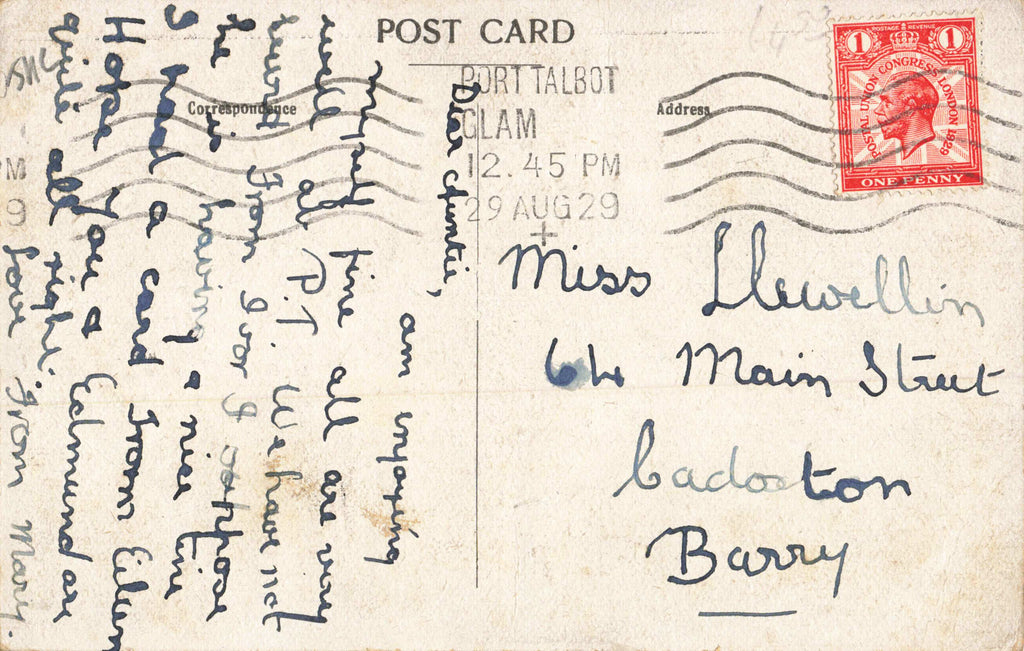 POST CARD
Correspondence
Address
PORT TALBOT
GLAM
12.45 PM
29 AUG 29
1 POSTAGE REVENUE 1
POSTAL UNION CONGRESS LONDON 1929
ONE PENNY
Dear Auntie,
am enjoying
myself fine all are very
well at P.T. We have not
heard from Ivor I suppose
he is having a nice time
I had a card from Eileen
Hope you & Edmund are
quite all right.
Love From Mary.
Miss Llewellin
64 Main Street
Cadoxton
Barry
PM
9